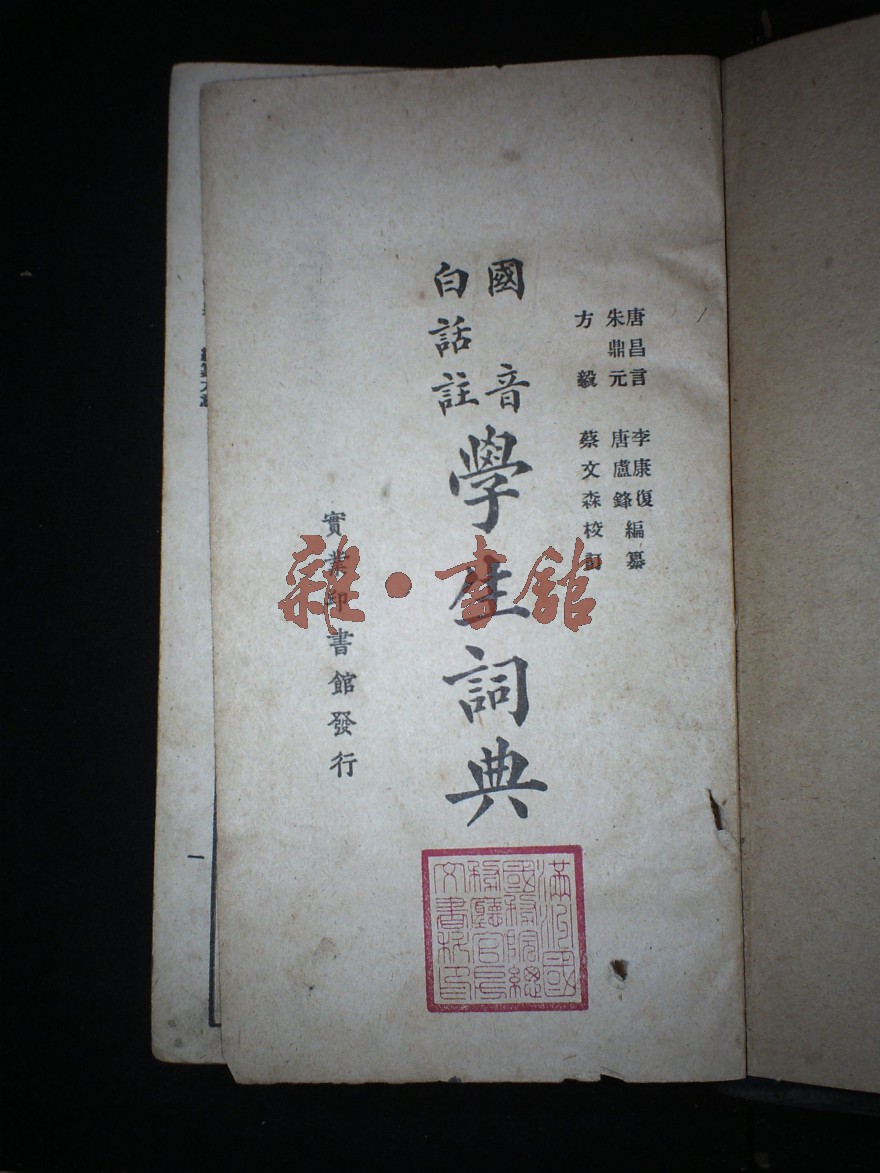 唐昌言 李康復
朱鼎元 唐盧鋒
編纂
方毅 蔡文森校訂
國音
白話註
學生詞典
實業印書館發行
滿洲國
國務院總
務廳官房
文書科印
雜·書館
一